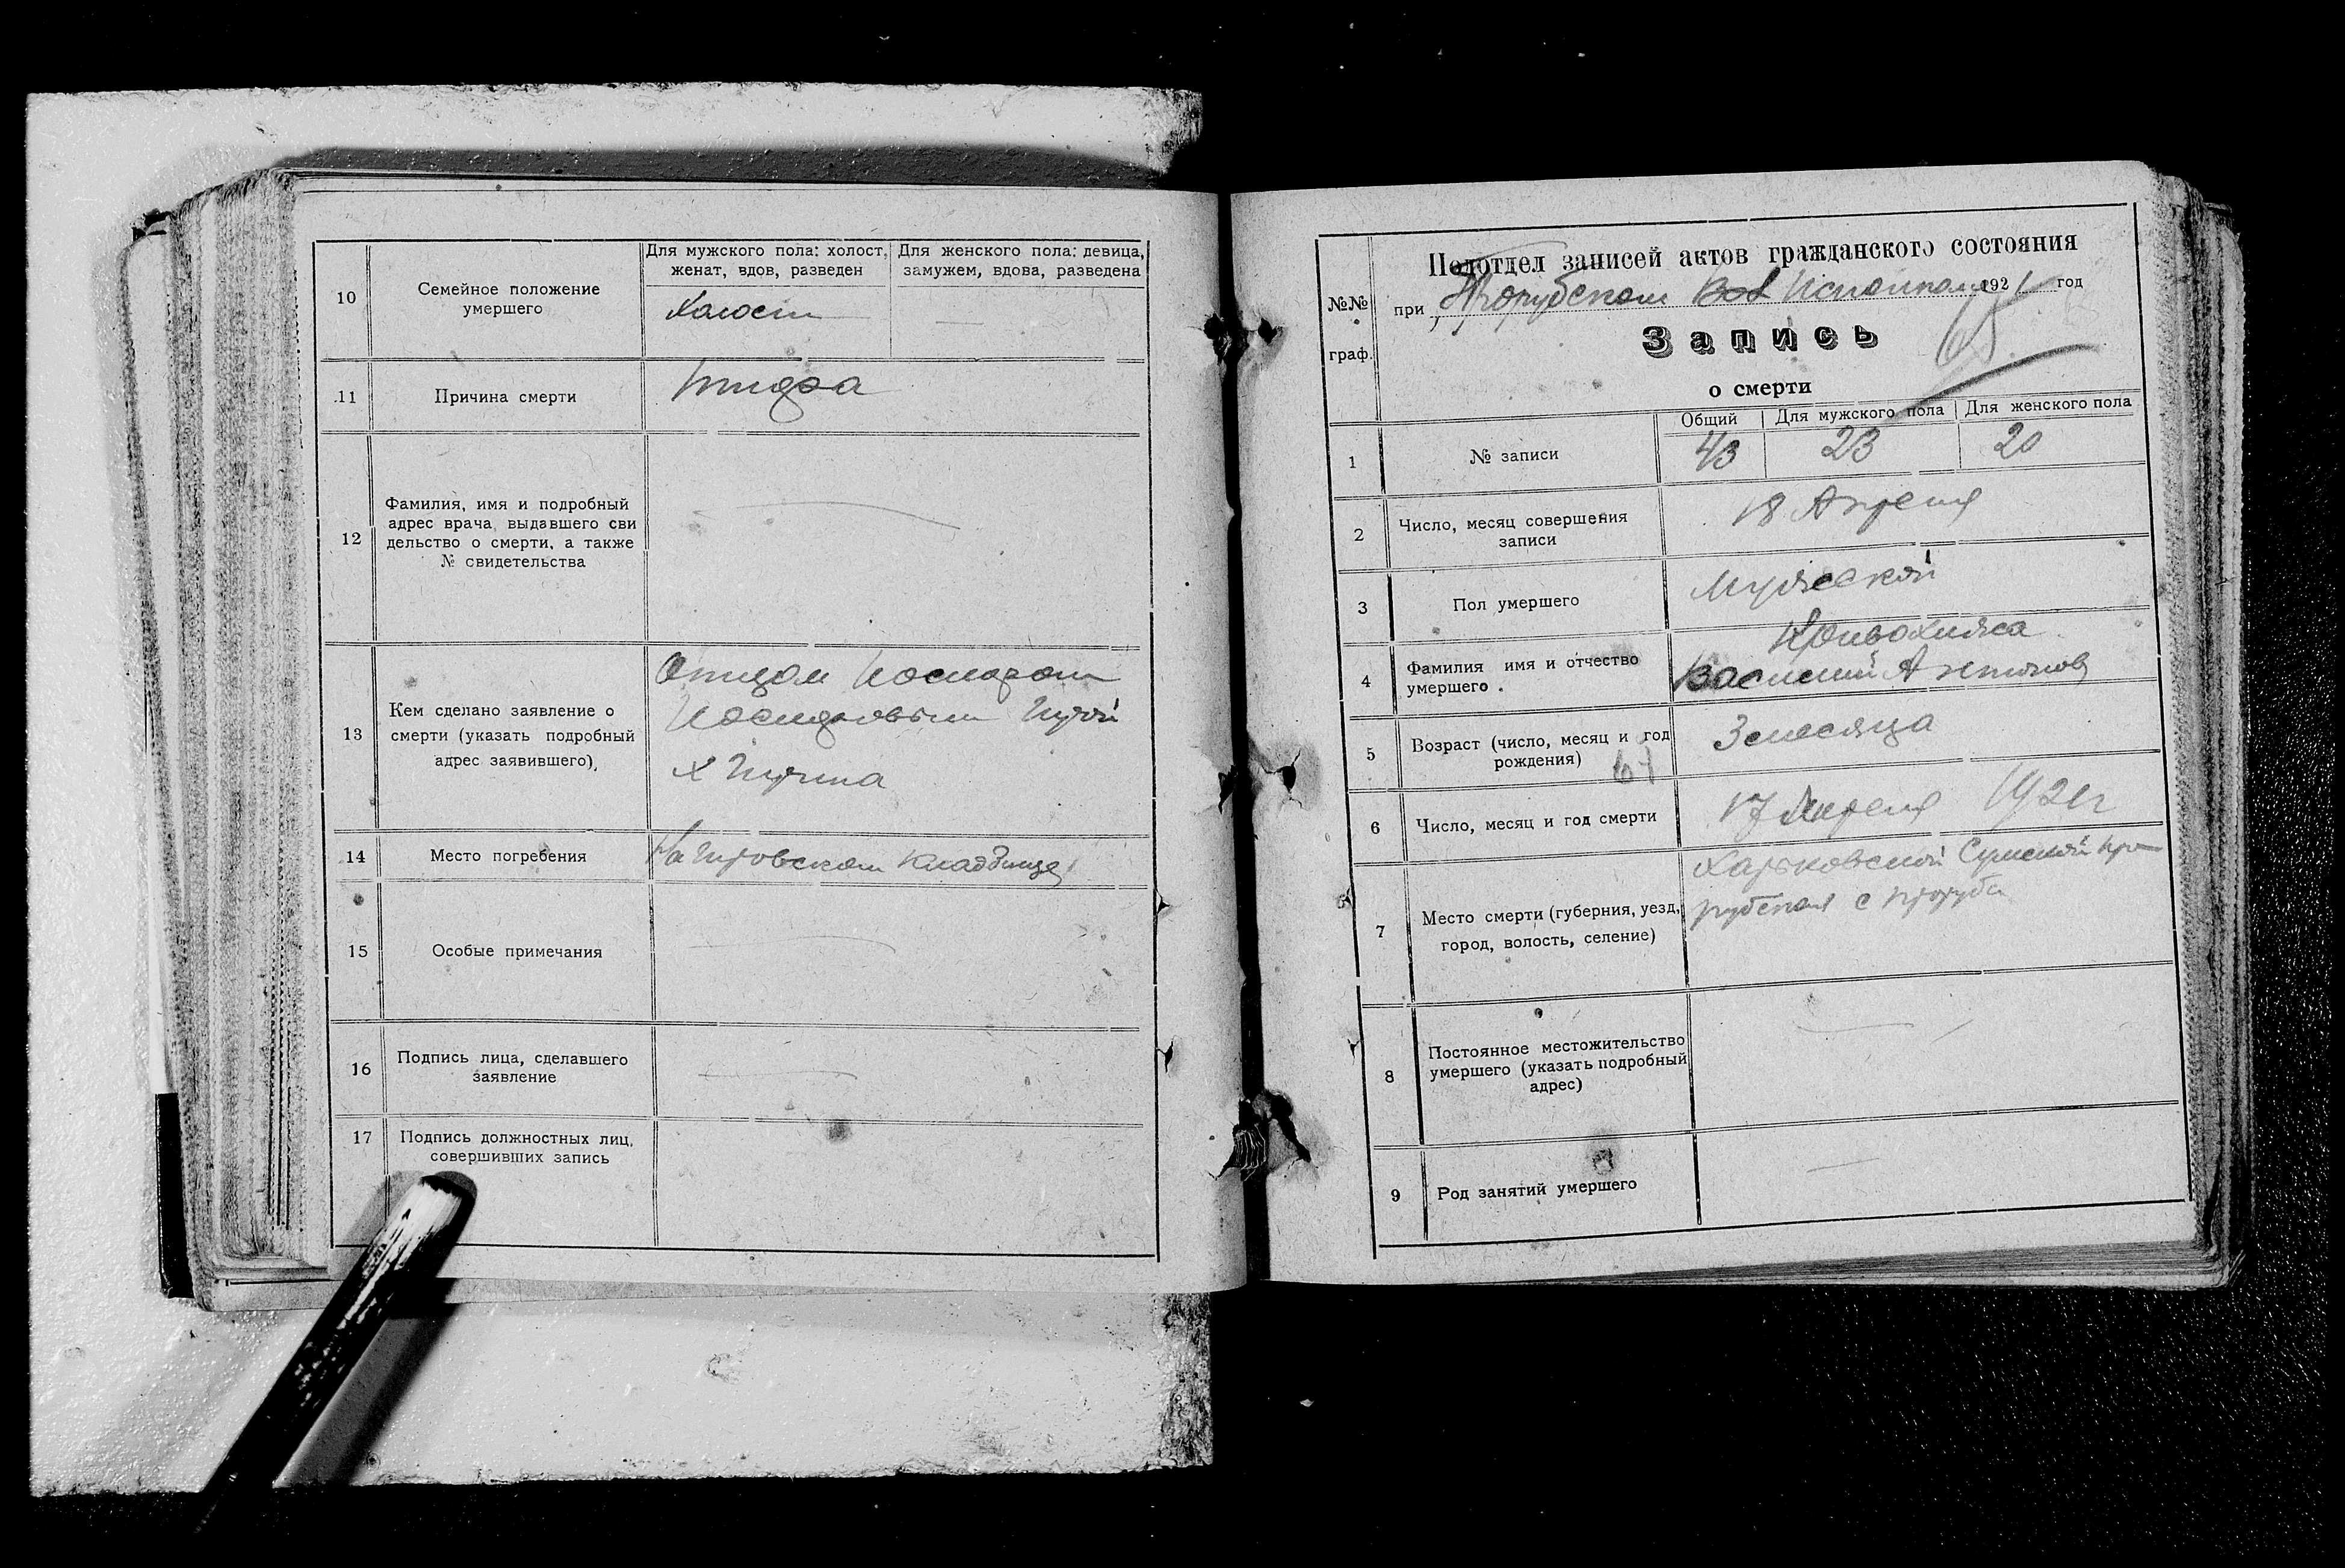 10
Семейное положение
умершего
Для мужского пола: холост,
женат, вдов, разведен
Для женского пола: девица,
замужем, вдова, разведена
Холост
11
Причина смерти
12
Фамилия, имя и подробный
адрес врача, выдавшего сви
дельство о смерти, а также
№ свидетельства
13
Кем сделано заявление о
смерти (указать подробный
адрес заявившего)
Отцом
14
Место погребения
На кладбище
15
Особые примечания
16
Подпись лица, сделавшего
заявление
17
Подпись должностных лиц,
совершивших запись
№№
граф.
Подотдел записей актов гражданского состояния
при Прорубском Вол Исполком 1921 год
Запись
о смерти
65
Общий
Для мужского пола
Для женского пола
1
№ записи
43
23
20
2
Число, месяц совершения
записи
18 Апреля
3
Пол умершего
Мужской
4
Фамилия имя и отчество
умершего.
Кривохижа
Василий Антонов
5
Возраст (число, месяц и год
рождения)
3 месяца
6
Число, месяц и год смерти
17 Апреля 1921г
7
Место смерти (губерния, уезд,
город, волость, селение)
Харьковской Сумской Про
рубская с Проруби
8
Постоянное местожительство
умершего (указать подробный
адрес)
9
Род занятий умершего